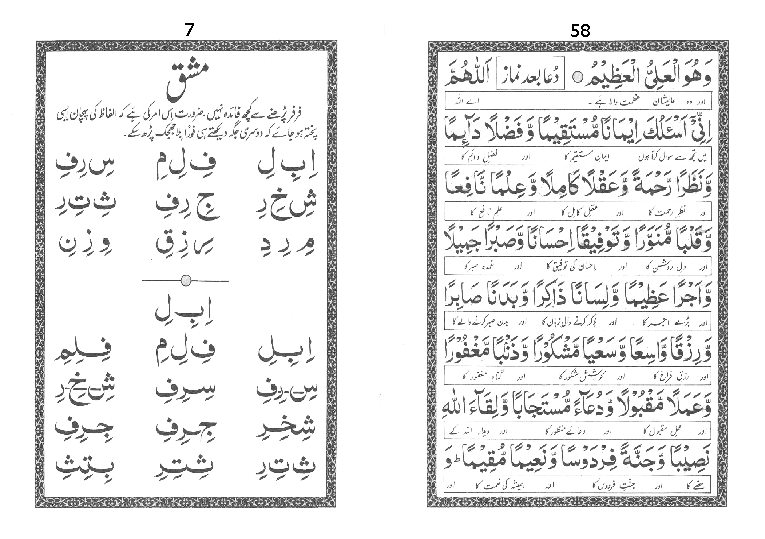 7
مشق
فرفر پڑھنے سے کچھ فائدہ نہیں ضرورت اِس امر کی ہے کہ الفاظ کی پہچان ایسی
پختہ ہو جائے کہ دوسری جگہ دیکھتے ہی فوراً بلا جھجک پڑھ سکے۔
اِ بِ لِ فِ لِ مِ سِ رِ فِ
شِ خِ رِ جِ رِ فِ ثِ تِ رِ
مِ رِ دِ سِ زِ قِ وِ زِ نِ
اِ بِ لِ
اِ بِـلِ فِ لِ مِ فِـلِـمِ
سِـ رِفِ سِـرِفِ شِـ خِـ رِ
شِـخِـرِ جِـرِفِ جِـرِفِ
ثِ تِ رِ ثِـتِـرِ بِـتِـثِ
58
وَهُوَ الْعَلِيُّ الْعَظِيْمُ دُعا بعد نماز اَللّٰهُمَّ
اور وہ عالیشان عظمت والا ہے۔ اے اللہ
اِنِّيْ اَسْئَلُكَ اِيْمَانًا مُّسْتَقِيْمًا وَّفَضْلًا دَآئِمًا
میں تجھ سے سوال کرتا ہوں ایمان مستقیم کا اور فضل دائم کا
وَّنَظْرًا رَّحْمَةً وَّعَقْلًا كَامِلًا وَّعِلْمًا نَّافِعًا
اور نظر رحمت کا اور عقل کامل کا اور علم نافع کا
وَّقَلْبًا مُّنَوَّرًا وَّتَوْفِيْقًا اِحْسَانًا وَّصَبْرًا جَمِيْلًا
اور دل روشن کا اور احسان کی توفیق کا اور عمدہ صبر کا
وَّاَجْرًا عَظِيْمًا وَّلِسَانًا ذَاكِرًا وَّبَدَنًا صَابِرًا
اور بڑے اجر کا اور ذکر کرنے والی زبان کا اور بدن صبر کرنے والے کا
وَّرِزْقًا وَّاسِعًا وَّسَعْيًا مَّشْكُوْرًا وَّذَنْبًا مَّغْفُوْرًا
اور رزق فراخ کا اور کوشش مشکور کا اور گناہ مغفور کا
وَّعَمَلًا مَّقْبُوْلًا وَّدُعَآءً مُّسْتَجَابًا وَّلِقَآءَ اللّٰهِ
اور عمل مقبول کا اور دعائے منظور کا اور دیدار اللہ کے
نَصِيْبًا وَّجَنَّةً فِرْدَوْسًا وَّنَعِيْمًا مُّقِيْمًا ط وَ
کا اور جنت فردوس کا اور ہمیشہ کی نعمت کا اور